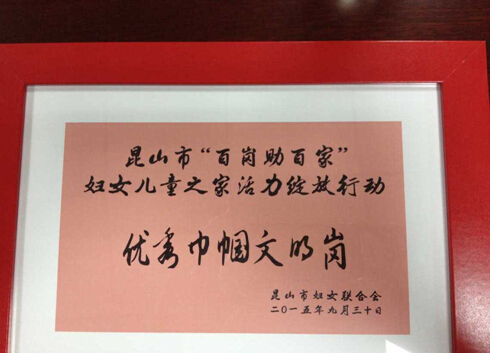 昆山市“百岗助百家”
妇女儿童之家活力绽放行动
优秀巾帼文明岗
昆山市妇女联合会
二〇一五年九月三十日